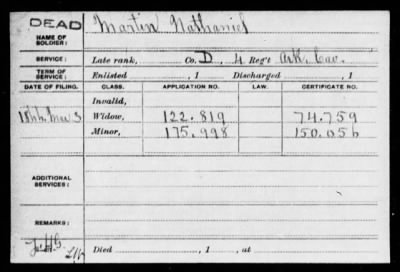 DEAD
NAME OF SOLDIER: Martin Nathaniel
SERVICE: Late rank, Co. D, 4 Reg't Ark. Cav.
TERM OF SERVICE: Enlisted , 1 Discharged , 1
DATE OF FILING. CLASS. APPLICATION NO. LAW. CERTIFICATE NO.
Invalid,
1866 Nov 3 Widow, 122.819 74.759
Minor, 175.998 150.056
ADDITIONAL SERVICES:
REMARKS:
Died , 1 , at